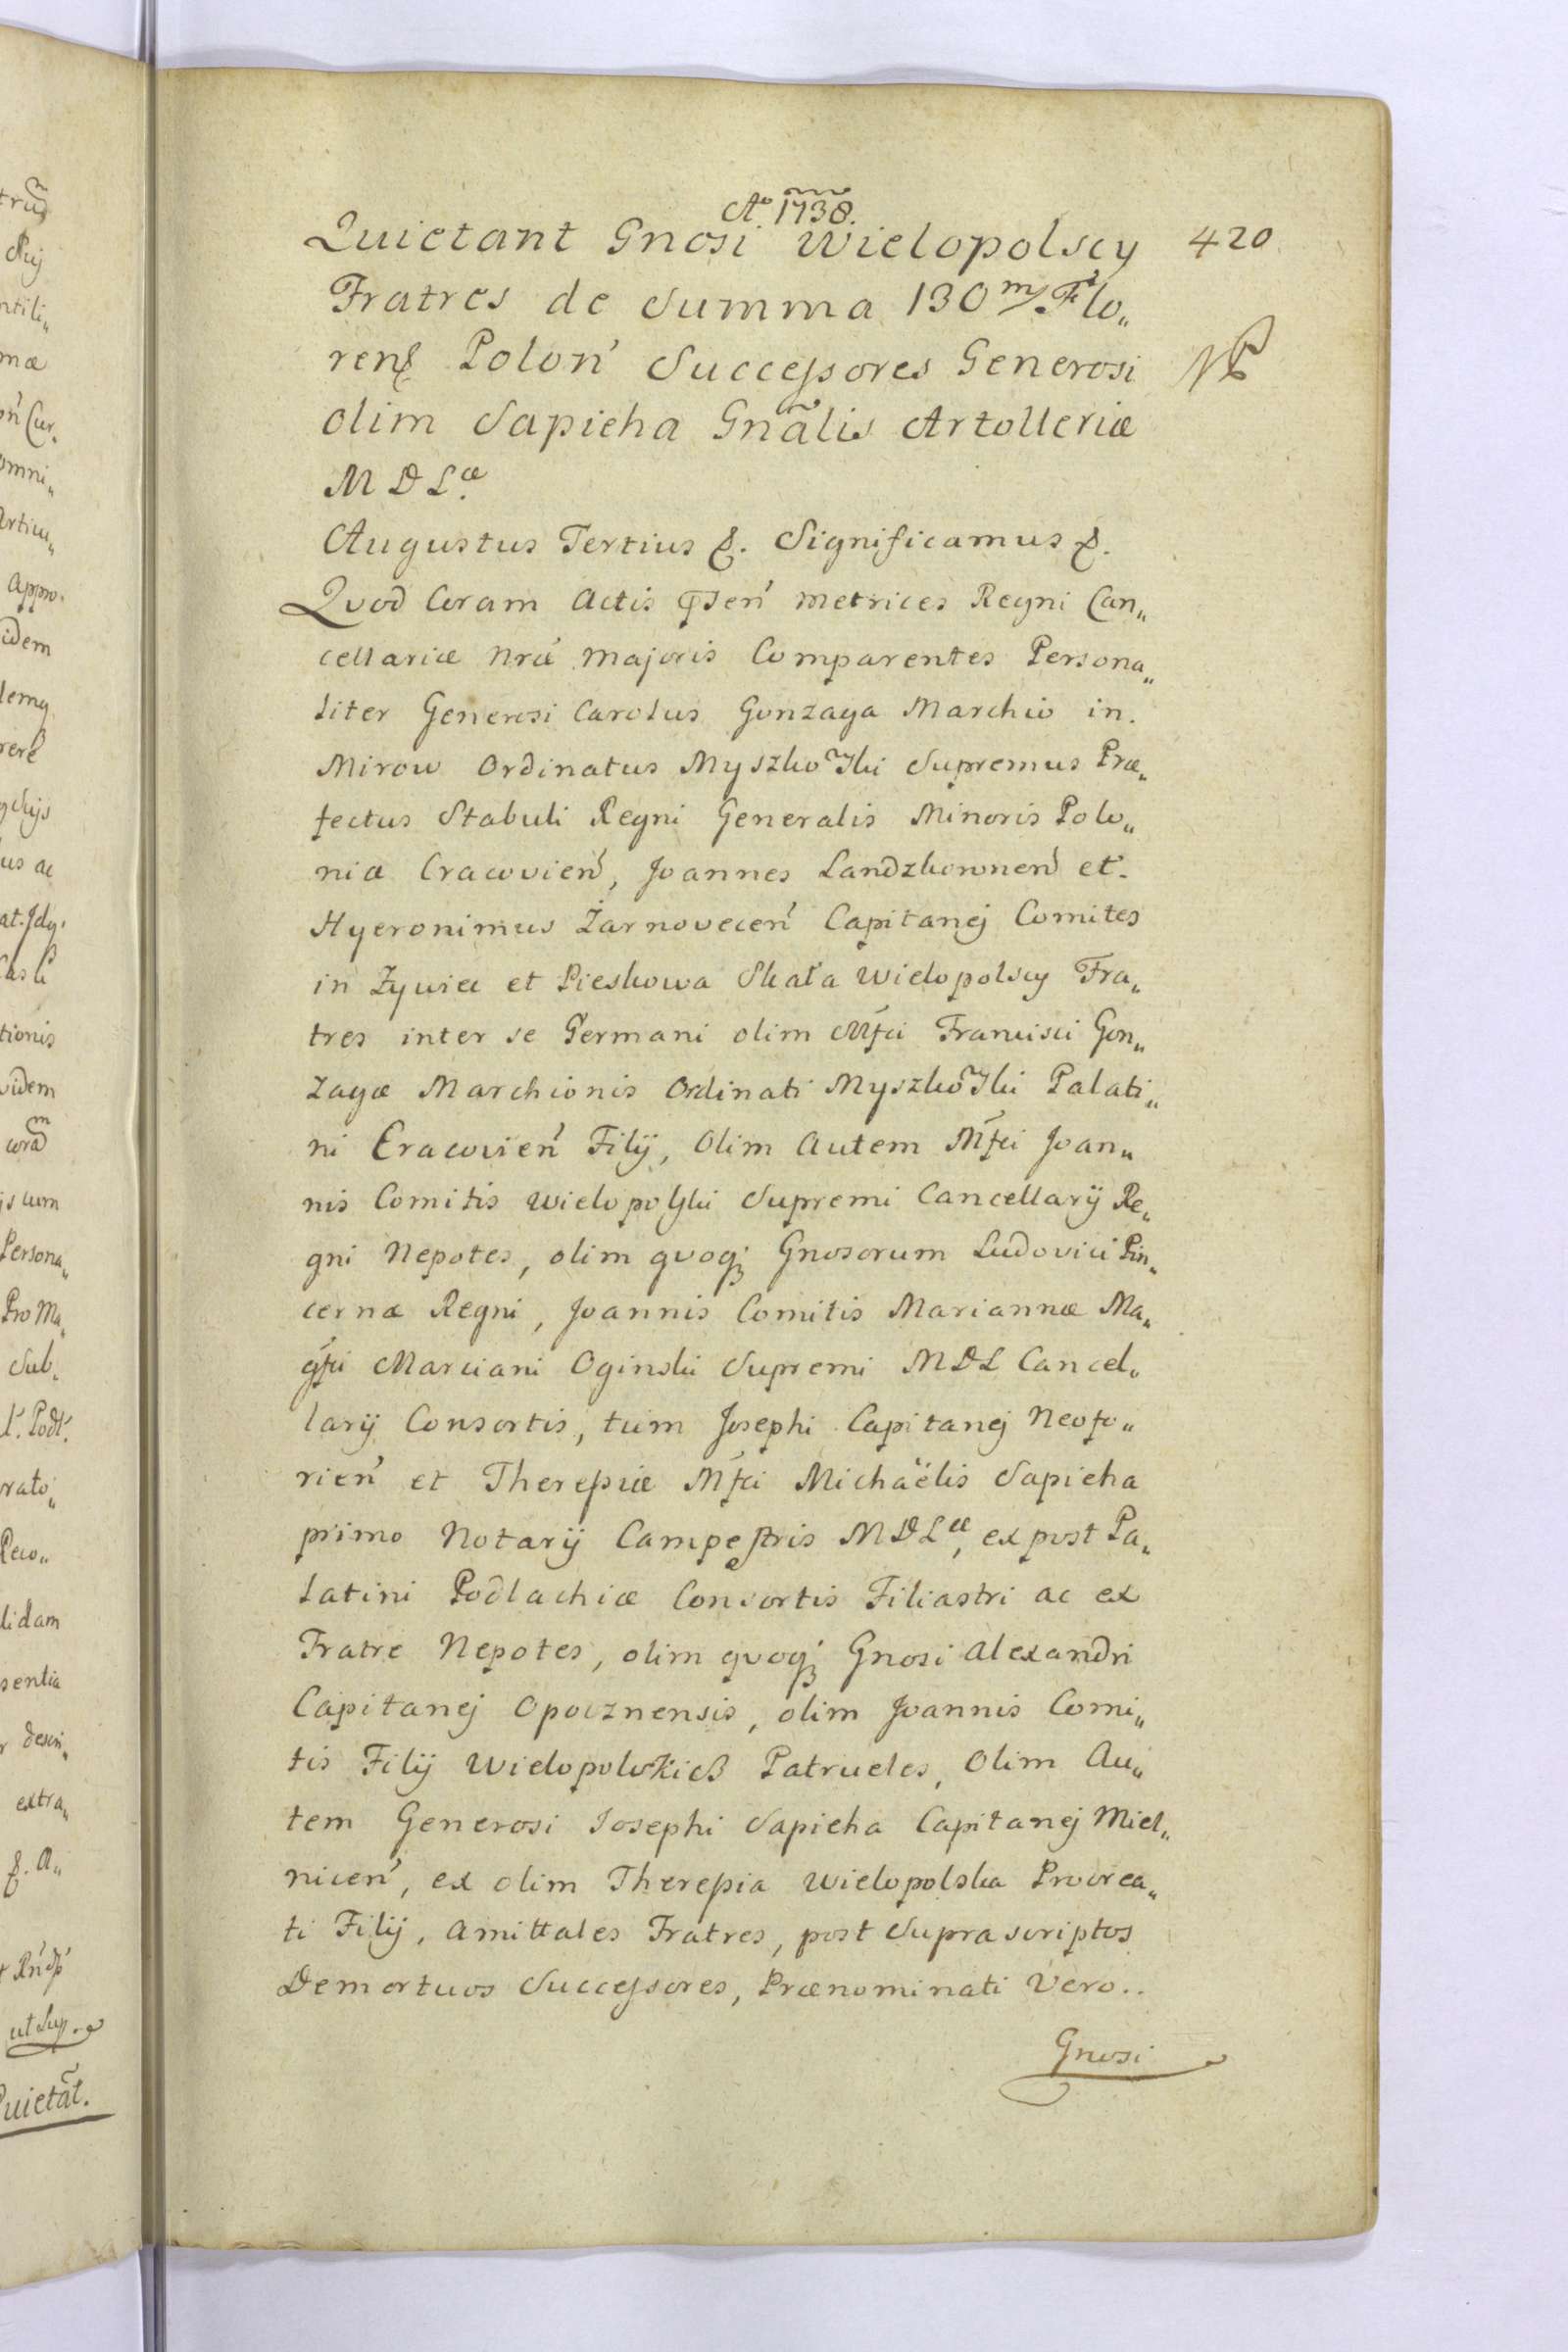 Aº 1738.
Quietant Gnosi Wielopolscy 420
Fratres de Summa 130 m/ Flo„
ren Polon' Successores Generosi
olim Sapieha Gnãlis Artolleriæ
M D L æ.
Augustus Tertius &. Significamus &.
Quod Coram Actis Metrices Regni Can„
cellariæ Nræ Majoris Comparentes Persona„
liter Generosi Carolus Gonzaga Marchio in.
Mirow Ordinatus Myszkowski Supremus Præ„
fectus Stabuli Regni Generalis Minoris Polo„
niæ Cracovien', Joannes Landzkownen' et.
Hyeronimus Żarnovecen' Capitanej Comites
in Zywiec et Pieskowa Skała Wielopolscy Fra„
tres inter se Germani olim Mfci Francisci Gon„
zagæ Marchionis Ordinati Myszkowski Palati„
ni Cracovien' Filÿ, Olim Autem Mfci Joan„
nis Comitis Wielopolski Supremi Cancellarÿ Re„
gni Nepotes, olim quoq; Gnosorum Ludovici Pin„
cernæ Regni, Joannis Comitis Mariannæ Ma„
gfci Marciani Oginski Supremi MDL Cancel„
larÿ Consortis, tum Josephi Capitanej Neofo„
rien' et Theressiæ Mfci Michaëlis Sapieha
primo Notarÿ Campestris MDLæ, ex post Pa„
latini Podlachiæ Consortis Filiastri ac ex
Fratre Nepotes, olim quoq; Gnosi Alexandri
Capitanej Opocznensis, olim Joannis Comi„
tis Filÿ Wielopolskich Patrueles, Olim Au„
tem Generosi Josephi Sapieha Capitanej Miel„
nicen', ex olim Theressia Wielopolska Procrea„
ti Filÿ, Amittales Fratres, post Supra scriptos
Demortuos Successores, Prænominati Vero..
Gnosi